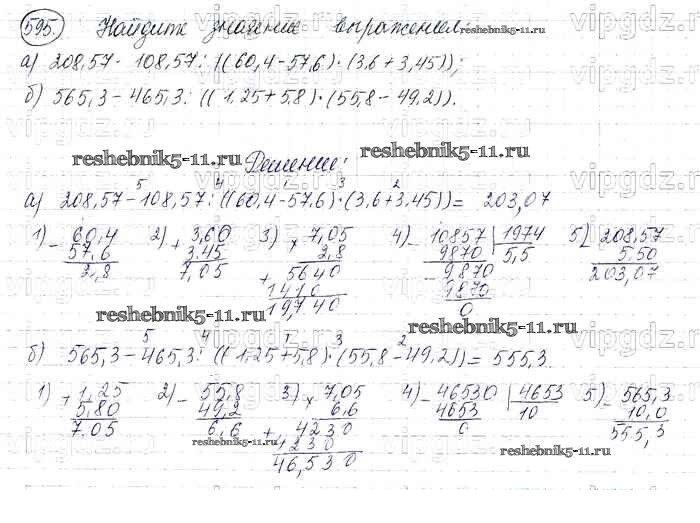 595. Найдите значение выражений:
reshebnik5-11.ru
а) 208,57 - 108,57 : ((60,4-57,6) · (3,6 + 3,45));
б) 565,3 - 465,3 : ((1,25+5,8) · (55,8 - 49,2)).
reshebnik5-11.ru
Решение:
5 4 1 3 2
а) 208,57 - 108,57 : ((60,4-57,6) · (3,6+3,45)) = 203,07
1) - 60,4 2) + 3,60 3) × 7,05 4) - 10857 | 1974 5) - 208,57
57,6 3,45 2,8 9870 5,5 5,50
2,8 7,05 + 5640 - 9870 203,07
1410 9870
19,740 0
reshebnik5-11.ru
5 4 1 3 2
б) 565,3 - 465,3 : ((1,25+5,8) · (55,8-49,2)) = 555,3
1) + 1,25 2) - 55,8 3) × 7,05 4) - 46530 | 4653 5) - 565,3
5,80 49,2 6,6 4653 10 10,0
7,05 6,6 + 4230 0 555,3
4230
46,530
reshebnik5-11.ru
reshebnik5-11.ru
vipgdz.ru